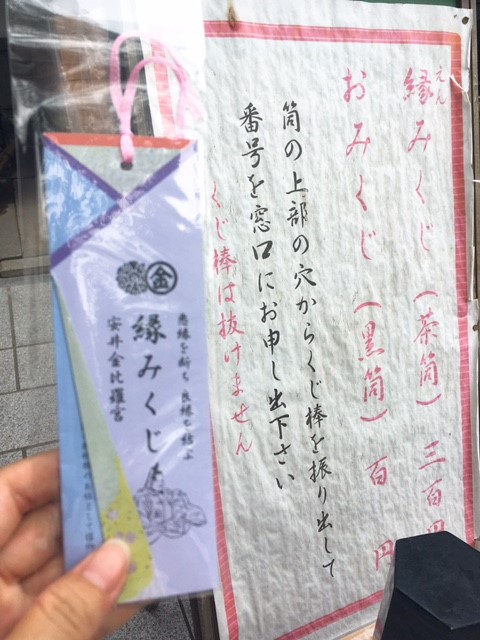 縁みくじ(茶筒)三百円
えん
おみくじ(黒筒)百円
筒の上部の穴からくじ棒を振り出して
番号を窓口にお申し出下さい
くじ棒は抜けません
悪縁を断ち良縁を結ぶ
金
縁みくじ
安井金比羅宮